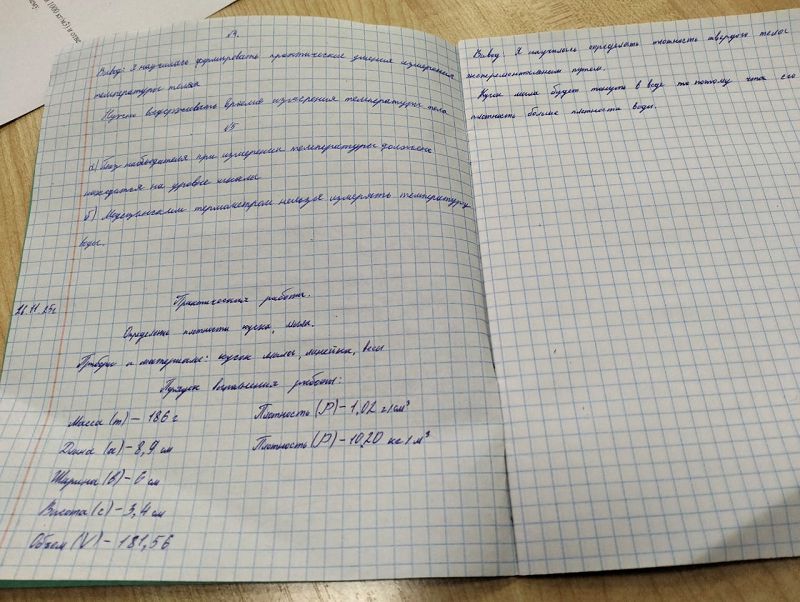 (1000 кг/м3) и отве
№3.
Вывод: Я научилась формировать практическое умения измерения
температуры телом
Нужно выдерживать время измерения температуры тела
№5
а) Глаз наблюдателя при измерении температуры должен
находится на уровне шкалы
б) Медецынским термометром нельзя измерять температуру
воды.
21.11.25г
Практическая работа.
Определение плотности куска, мыла.
Приборы и материалы: кусок мыла, линейка, весы
Порядок выполнения работы:
Масса (m) – 186 г
Длина (a) – 8,9 см
Ширина (b) – 6 см
Высота (c) – 3,4 см
Объем (V) – 181,56
Плотность (P) – 1,02 г/см³
Плотность (P) – 1020 кг/м³
Вывод: Я научилась определять плотность твёрдого тела
экспериментальным путем.
Кусок мыла будет тонуть в воде то потому что его
плотность больше плотности воды.